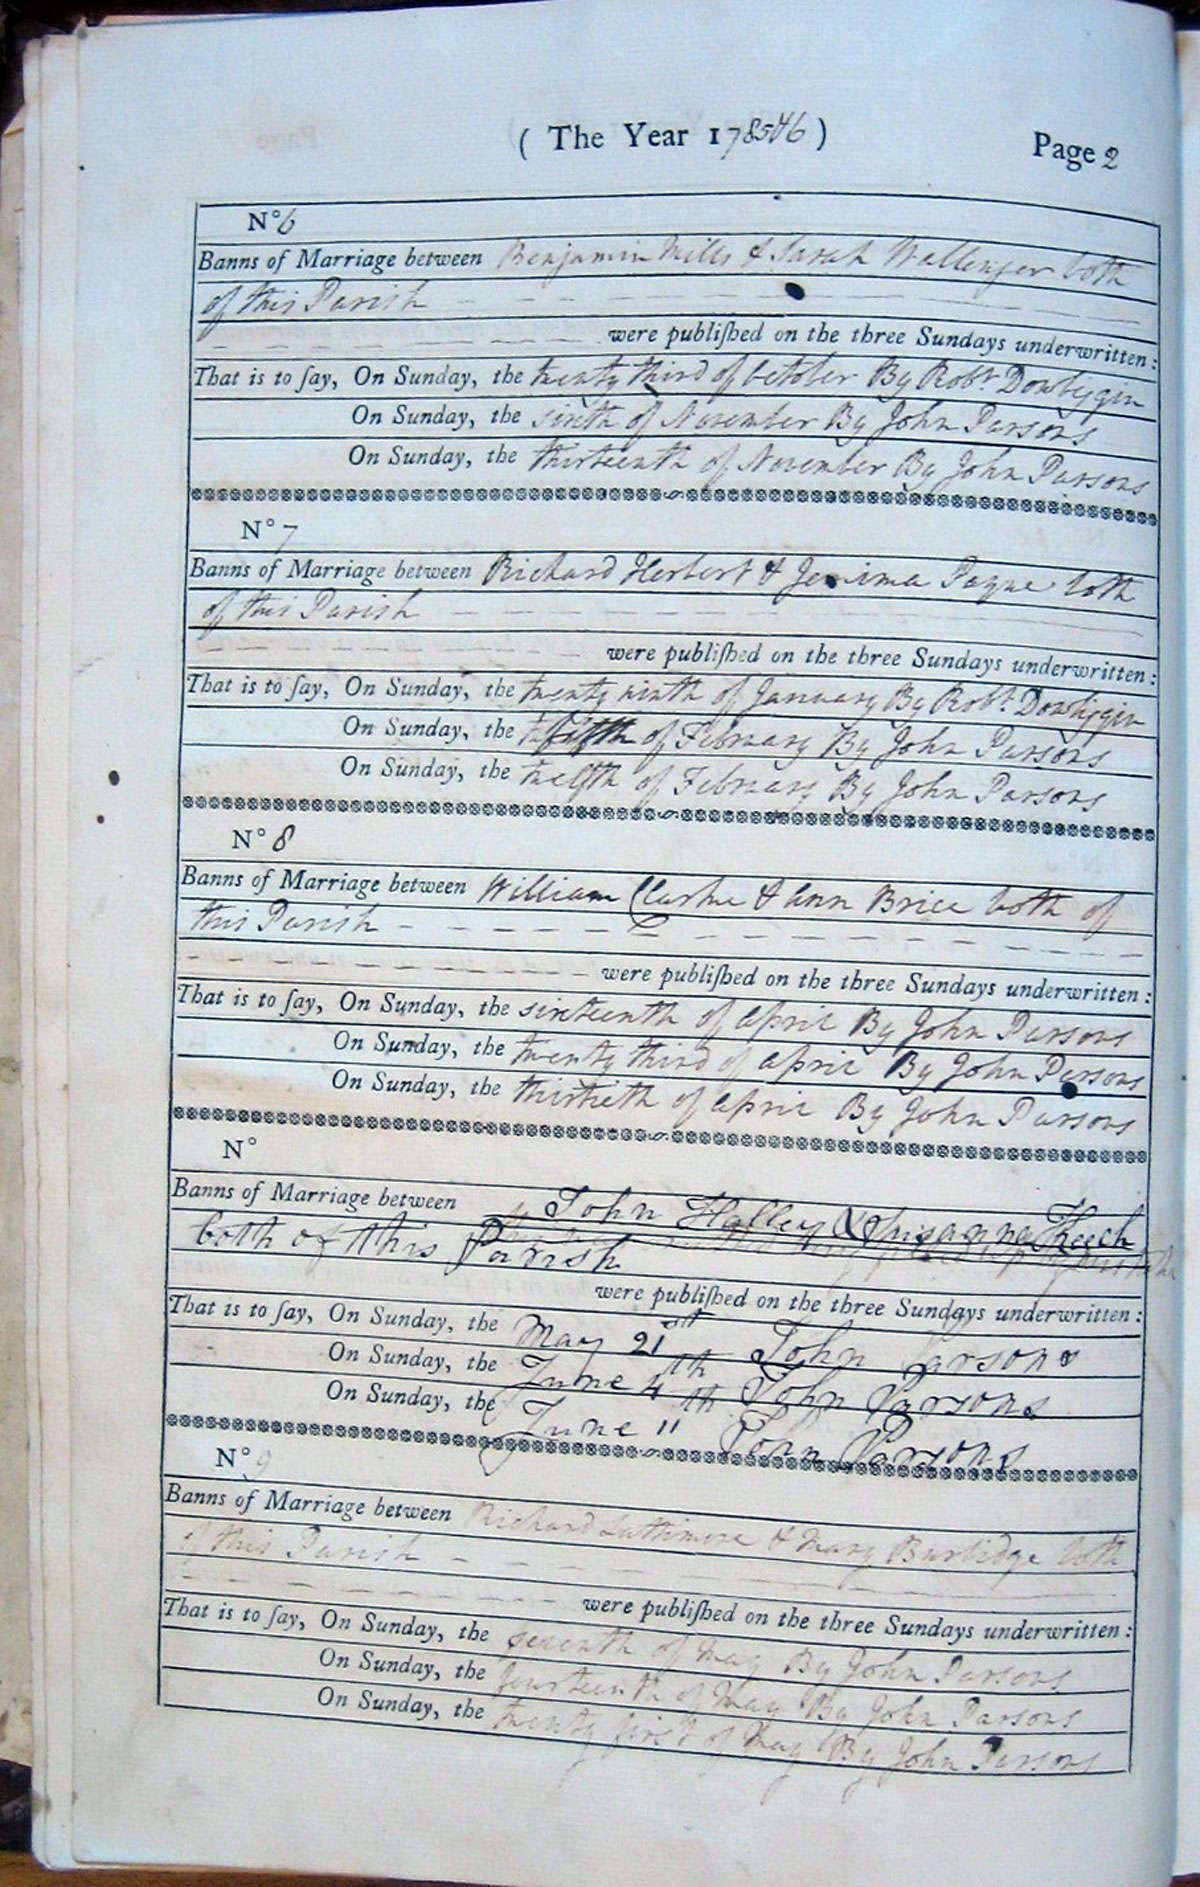 ( The Year 1785 & 6 )
Page 2
N° 6
Banns of Marriage between Benjamin Mills & Sarah Wallinger both
of this Parish
were publiſhed on the three Sundays underwritten:
That is to ſay, On Sunday, the twenty third of october By Robt. Dowbiggin
On Sunday, the sixth of November By John Parsons
On Sunday, the thirteenth of November By John Parsons
N° 7
Banns of Marriage between Richard Herbert & Jemima Payne both
of this Parish
were publiſhed on the three Sundays underwritten:
That is to ſay, On Sunday, the twenty ninth of January By Robt. Dowbiggin
On Sunday, the fifth of February By John Parsons
On Sunday, the twelfth of February By John Parsons
N° 8
Banns of Marriage between William Clarke & Ann Brice both of
this Parish
were publiſhed on the three Sundays underwritten:
That is to ſay, On Sunday, the sixteenth of april By John Parsons
On Sunday, the twenty third of april By John Parsons
On Sunday, the thirtieth of april By John Parsons
N°
Banns of Marriage between John Halley & Susanna Keech
both of this Parish
were publiſhed on the three Sundays underwritten:
That is to ſay, On Sunday, the May 21st John Parsons
On Sunday, the June 4th John Parsons
On Sunday, the June 11th John Parsons
N° 9
Banns of Marriage between Richard Lattimore & Mary Burbidge both
of this Parish
were publiſhed on the three Sundays underwritten:
That is to ſay, On Sunday, the seventh of May By John Parsons
On Sunday, the fourteenth of May By John Parsons
On Sunday, the twenty first of May By John Parsons